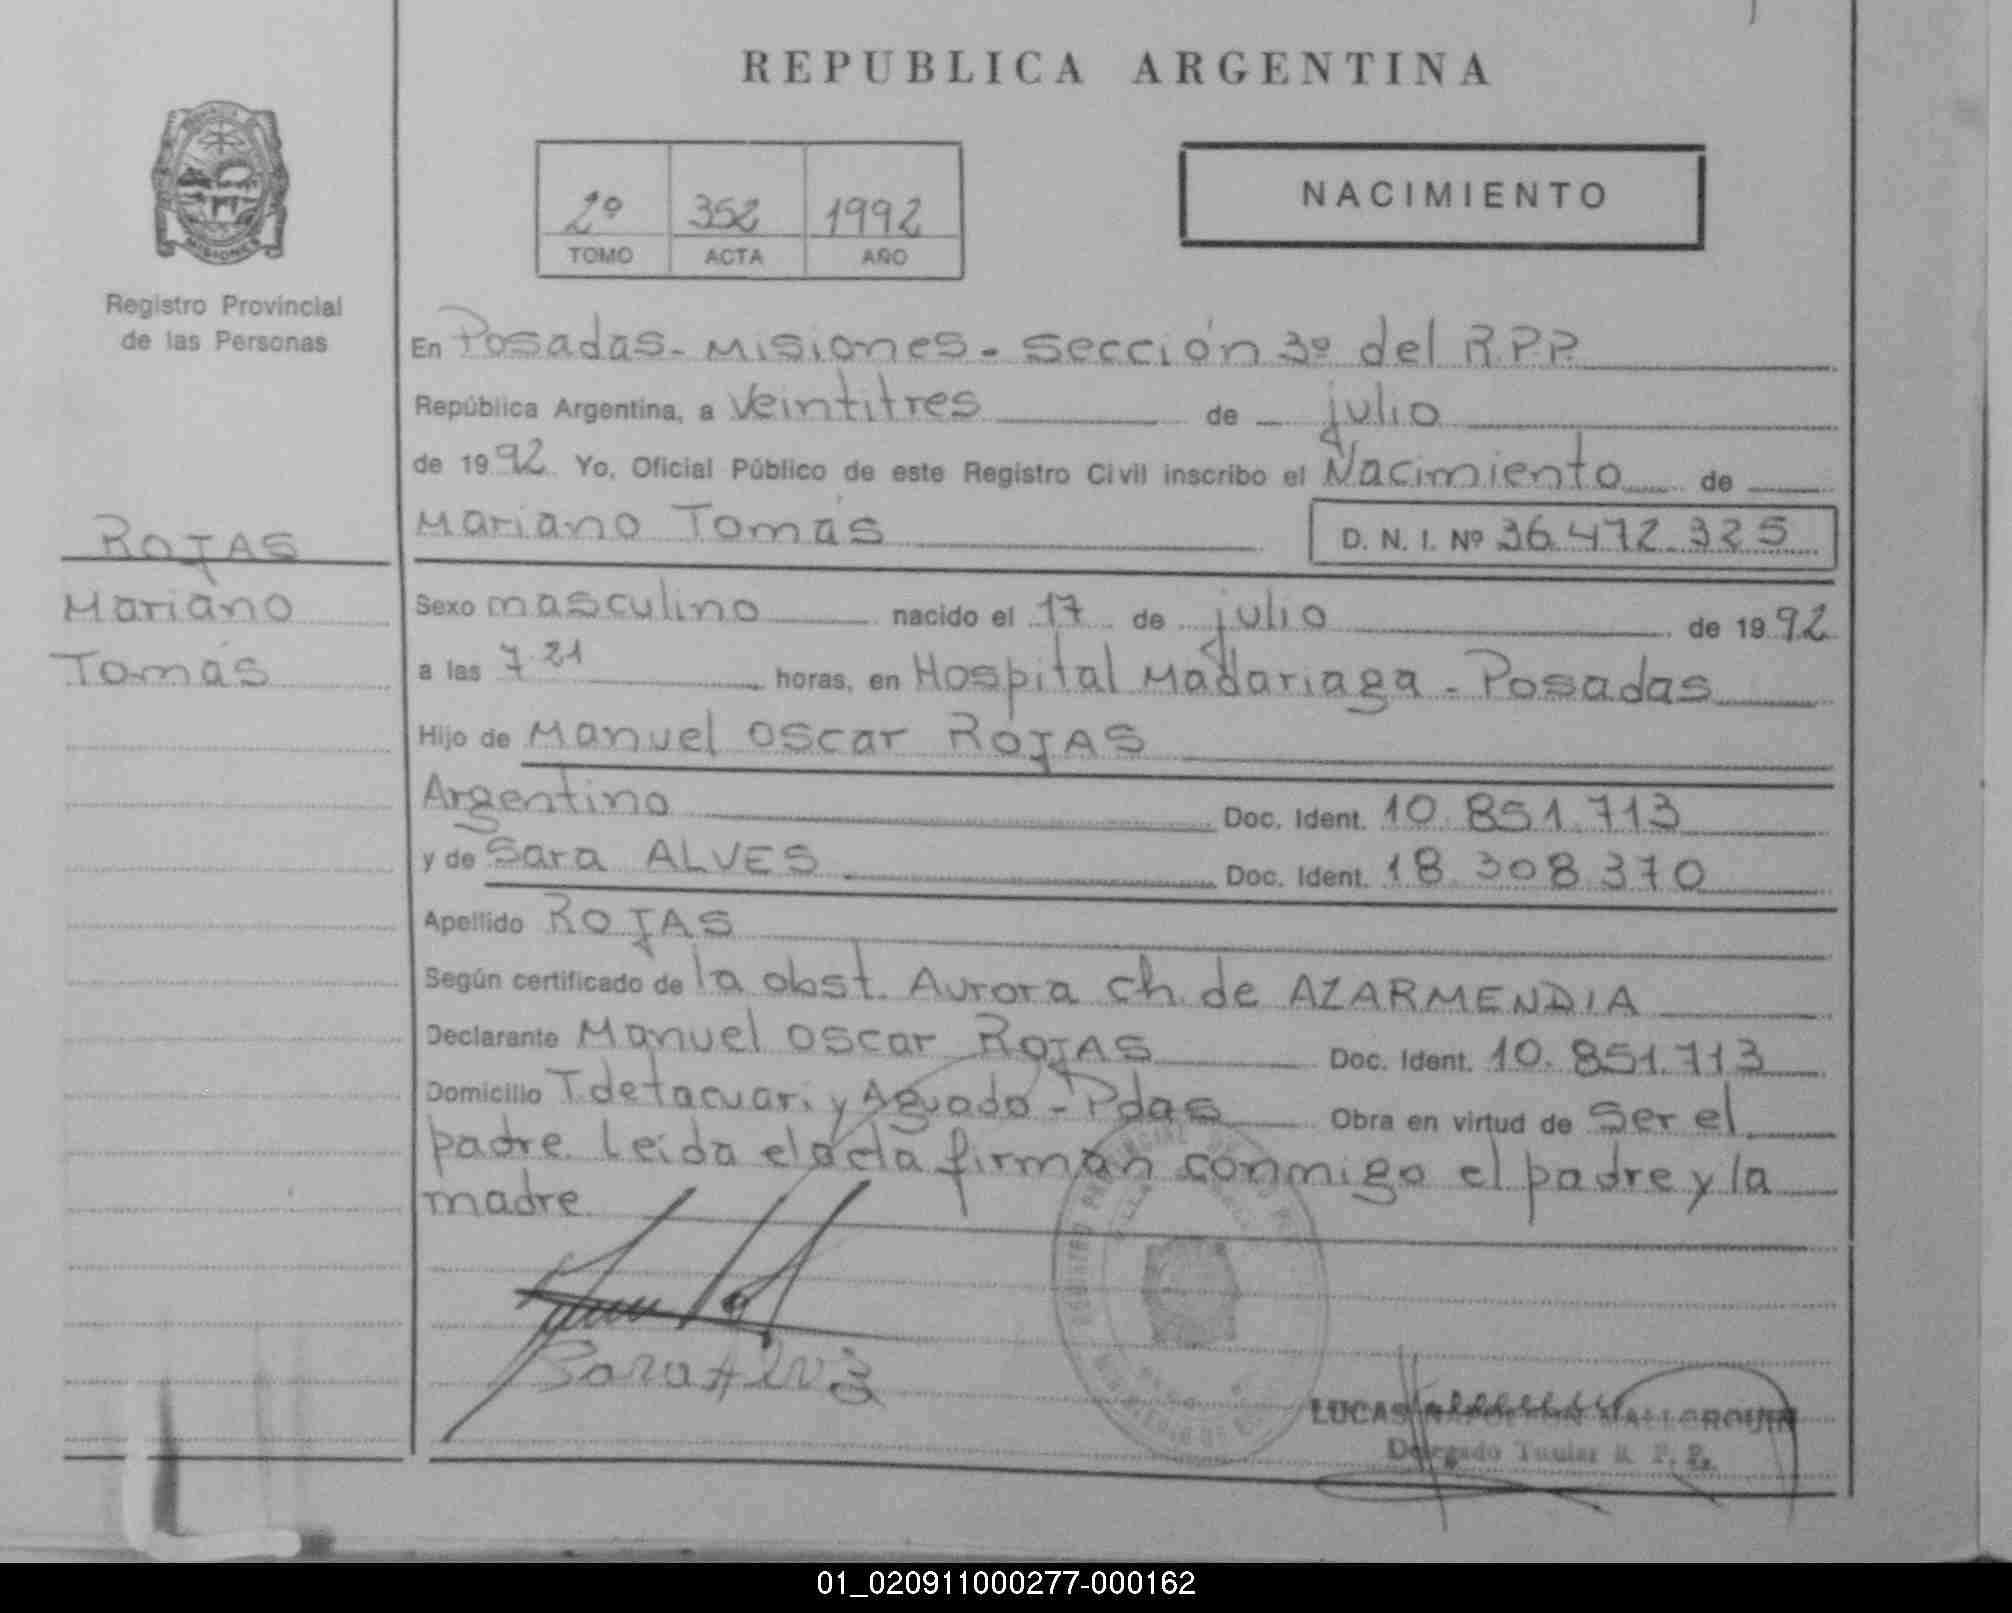 REPUBLICA ARGENTINA
2º 352 1992
TOMO ACTA AÑO
NACIMIENTO
MISIONES
Registro Provincial
de las Personas
ROJAS
Mariano
Tomás
En Posadas - Misiones - Sección 3º del R.P.P.
República Argentina, a veintitres de julio
de 1992 Yo, Oficial Público de este Registro Civil inscribo el Nacimiento de
Mariano Tomás D. N. I. Nº 36.472.325
Sexo masculino nacido el 17 de julio de 1992
a las 7.21 horas, en Hospital Madariaga - Posadas
Hijo de Manuel Oscar ROJAS
Argentino Doc. Ident. 10.851.713
y de Sara ALVES Doc. Ident. 18.308.370
Apellido ROJAS
Según certificado de la obst. Aurora Ch. de AZARMENDIA
Declarante Manuel Oscar ROJAS Doc. Ident. 10.851.713
Domicilio T. de tacuari y Aguado - Pdas Obra en virtud de ser el
padre. Leida el acta firman conmigo el padre y la
madre.
LUCAS
Delegado Titular R. P. P.
01_020911000277-000162